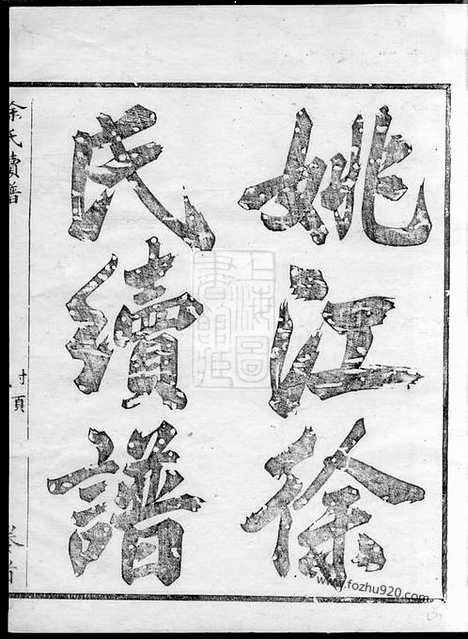 姚江徐
氏續譜
徐氏續譜
封頁
卷首
www.fozhu920.com